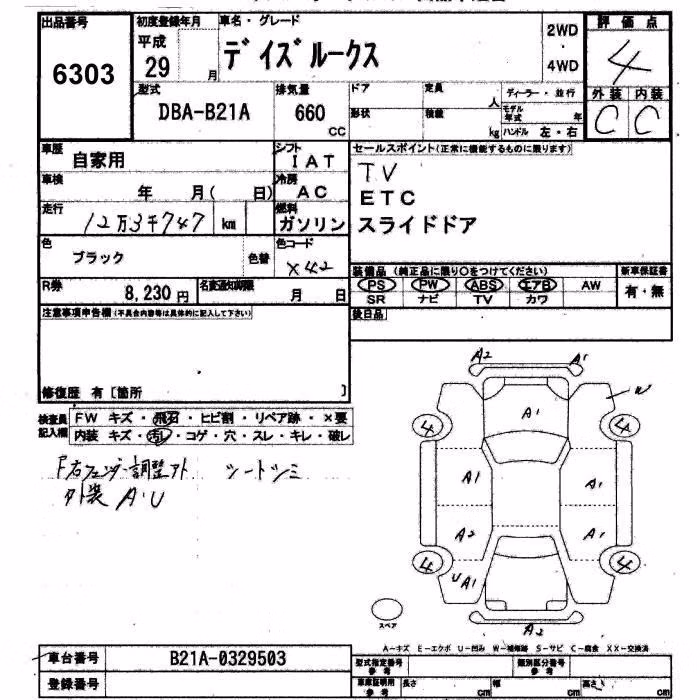 出品番号
6303
初度登録年月
平成
29 月
車名・グレード
デイズルークス
2WD
4WD
評価点
4
外装 内装
C C
型式
DBA-B21A
排気量
660
CC
ドア
形状
定員
人
積載
kg
ディーラー・並行
モデル年式 年
ハンドル 左・右
車歴
自家用
シフト
IAT
車検
年 月( 日)
冷房
AC
走行
12万3千747 km
燃料
ガソリン
色
ブラック
色替
色コード
X42
R券
8,230円
名変通知期限
月 日
セールスポイント(正常に機能するものに限ります)
TV
ETC
スライドドア
装備品 (純正品に限り○をつけてください)
新車保証書
PS PW ABS エアB AW
有・無
SR ナビ TV カワ
後日品
注意事項申告欄(不具合内容等は具体的に記入して下さい)
修復歴 有〔箇所 〕
検査員記入欄
FW キズ・飛石・ヒビ割・リペア跡・×要
内装 キズ・汚レ・コゲ・穴・スレ・キレ・破レ
F右フェンダー調整アト シートシミ
外装 A・U
A2 A1
A1 W
4 4
A1 A1
A2 A1
4 4
U A1
A2
スペア
A-キズ E-エクボ U-凹み W-補修跡 S-サビ C-腐食 XX-交換済
車台番号
B21A-0329503
登録番号
型式指定番号
参考
類別区分番号
参考
車庫証明用
参考
長さ cm 幅 cm 高さ cm